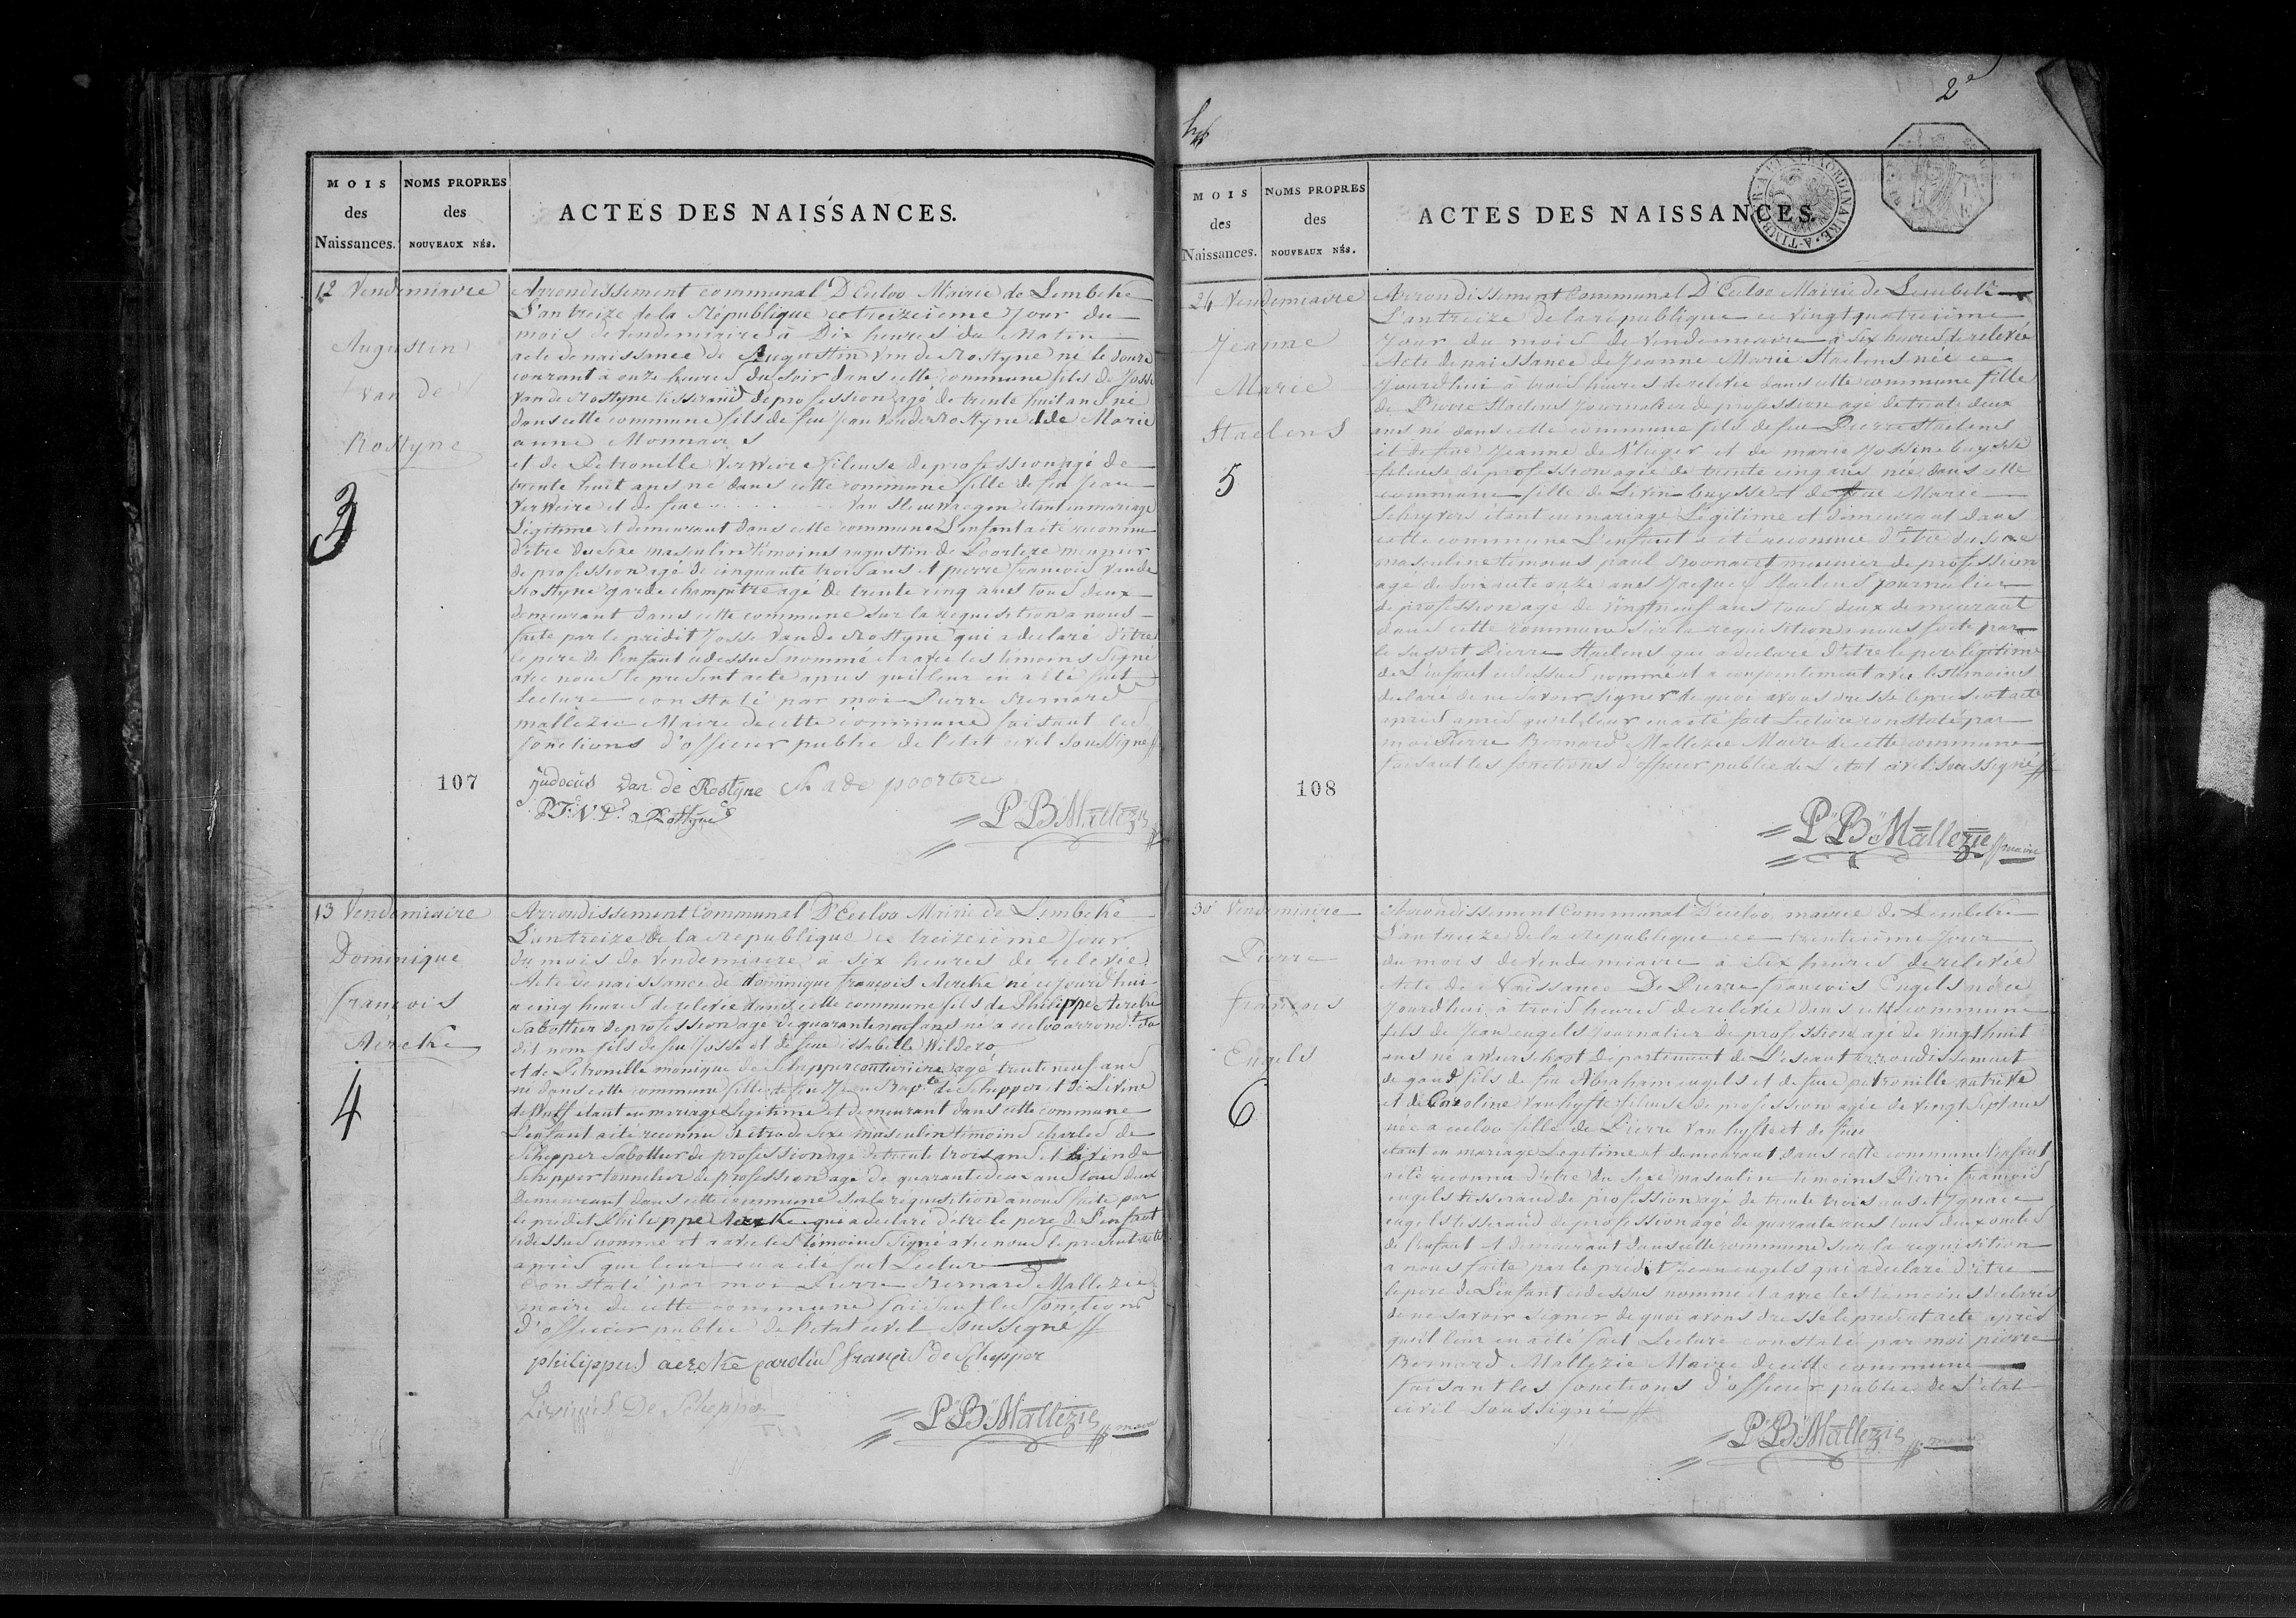 MOIS
des
Naissances.
NOMS PROPRES
des
NOUVEAUX NÉS.
ACTES DES NAISSANCES.
12 Vendemiaire
Augustin
Van de
Rostyne
3
107
Arrondissement communal D'Eecloo Mairie de Lembeke
L'an treize de la République ce treizieme Jour du
mois de Vendemiaire à Dix heures du Matin
acte de naissance de Augustin Van de Rostyne né le douze
courant à onze heures du soir dans cette commune fils de Josse
Van de Rostyne tisserand de profession agé de trente huit ans né
dans cette commune fils de feu Jean Van de Rostyne et de Marie
anne
et de Petronille VerWeire fileuse de profession agé de
trente huit ans né dans cette commune fille de feu Jean
VerWeire et de feue Van etant en mariage
Légitime et demeurant dans cette commune L'enfant a été reconnu
d'être du Sexe masculin témoins augustin de Poortere meunier
de profession agé de cinquante trois ans et pierre francois Van de
Rostyne garde champêtre agé de trente cinq ans tous deux
demeurant dans cette commune sur la requisition a nous
faite par le prédit Josse Van de Rostyne qui a declaré d'être
le pere de l'enfant cidessus nommé et a avec les témoins signé
avec nous le present acte apres qu'il leur en a été fait
Lecture constaté par moi Pierre Bernard
Mallezie Maire de cette commune faisant les
fonctions d'officier public de l'etat civil soussigné
Judocus Van de Rostyne A de poortere
P. F. V. D. Rostyne
P B Mallezie
13 Vendemiaire
Dominique
françois
Aercke
4
Arrondissement Communal D'Eecloo Mairie de Lembeke
L'an treize de la République ce treizieme jour
du mois de Vendemiaire à six heures de relevée
Acte de naissance de dominique françois Aercke né cejourd'hui
a cinq heures de relevée dans cette commune fils de Philippe Aercke
Sabottier de profession agé de quarante neuf ans né a eecloo arrond.t du
dit nom fils de feu Josse et de feue isabelle Wildero
et de Petronille monique de Schepper couturière agé trente neuf ans
né dans cette commune fille de feu Jean Bap.te de Schepper et de Livine
de Wulf etant en mariage Legitime et demeurant dans cette commune
L'enfant a été reconnu d'etre de Sexe masculin temoins charles de
Schepper Sabottier de profession agé de trente trois ans et Livin de
Schepper tonnelier de profession agé de quarante deux ans tous deux
Demeurant dans cette commune sur la requisition a nous faite par
le predit Philippe Aercke qui a declaré d'etre le pere de L'enfant
cidessus nommé et a avec les témoins Signé avec nous le present acte
après que leur en a été fait Lecture
Constaté par moi Pierre Bernard Mallezie
maire de cette commune faisant les fonctions
d'officier public de l'etat civil soussigné
philippus aercke carolus franciis de Schepper
Livinus De Schepper
P B Mallezie maire
2e
MOIS
des
Naissances.
NOMS PROPRES
des
NOUVEAUX NÉS.
ACTES DES NAISSANCES.
A TIMBR. A L'EXTRAORDINAIRE
24 Vendemiaire
Jeanne
Marie
Staelens
5
108
Arrondissement Communal D'Eecloo Mairie de Lembeke
L'an treize de la république ce vingt quatrieme
Jour du mois de Vendemiaire à six heures de relevée
Acte de naissance de Jeanne Marie Staelens née ce
Jourdhui à trois heures de relevée dans cette commune fille
de Pierre Staelens Journalier de profession agé de trente deux
ans né dans cette commune fils de feu Pierre Staelens
et de feue Jeanne de et de marie Buysse
fileuse de profession agée de trente cinq ans née dans cette
commune fille de Livin buysse et de feue Marie
étant en mariage Legitime et demeurant dans
cette commune L'enfant a été reconnue d'être du sexe
masculin témoins paul meunier de profession
agé de soixante onze ans Jacques Staelens journalier
de profession agé de vingt neuf ans tous deux demeurant
dans cette commune sur la requisition a nous faite par
le susdit Pierre Staelens qui a declaré d'être le pere legitime
de L'enfant cidessus nommé et a conjointement avec les temoins
declaré de ne savoir signer de quoi avons dressé le present acte
apres apres qu'il leur en a été fait Lecture constaté par
moi Pierre Bernard Mallezie Maire de cette commune
faisant les fonctions d'officier public de L'etat civil soussigné
P B Mallezie maire
30 Vendemiaire
Pierre
françois
Engels
6
Arrondissement Communal D'eecloo mairie de Lembeke
L'an treize de la République ce trentieme Jour
du mois de Vendemiaire à six heures de relevée
Acte de Naissance De Pierre françois Engels né ce
Jourd'hui à trois heures de relevée dans cette commune
fils de Jean engels Journalier de profession agé de vingt huit
ans né a Waerschoot Departement de L'escaut arrondissement
de gand fils de feu Abraham engels et de feue petronille
et de Caroline Van hyfte fileuse de profession agée de vingt Sept ans
née a eecloo fille de Pierre Van hyfte et de feue
étant en mariage Legitime et demeurant dans cette commune L'enfant
a été reconnu d'etre du Sexe masculin temoins Pierre françois
engels tisserand de profession agé de trente trois ans et Ignace
engels tisserand de profession agé de quarante ans tous deux oncles
de l'enfant et demeurant dans cette commune sur la requisition
a nous faite par le predit Jean engels qui a declaré d'etre
le pere de L'enfant cidessus nommé et a avec les témoins declarés
de ne savoir signer de quoi avons dressé le present acte après
qu'il leur en a été fait Lecture constaté par moi pierre
Bernard Mallezie Maire de cette commune
faisant les fonctions d'officier public de L'etat
civil soussigné
P B Mallezie maire